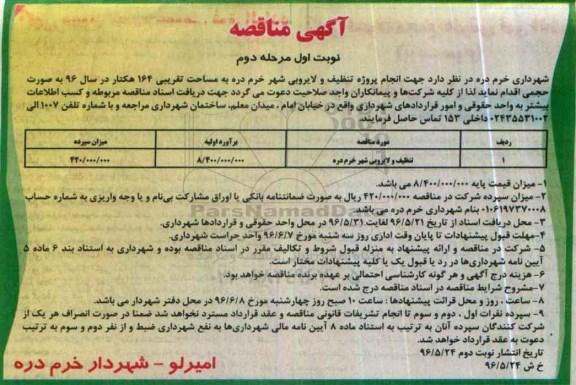 آگهی مناقصه
نوبت اول مرحله دوم
شهرداری خرم دره در نظر دارد جهت انجام پروژه تنظیف و لایروبی شهر خرم دره به مساحت تقریبی ۱۶۴ هکتار در سال ۹۶ به صورت
حجمی اقدام نماید لذا از کلیه شرکت‌ها و پیمانکاران واجد صلاحیت دعوت می گردد جهت دریافت اسناد مناقصه مربوطه و کسب اطلاعات
بیشتر به واحد حقوقی و امور قراردادهای شهرداری واقع در خیابان امام ، میدان معلم، ساختمان شهرداری مراجعه و با شماره تلفن ۱۰۰۷ الی
۰۲۴۳۵۵۳۱۰۰۲ داخلی ۱۵۳ تماس حاصل فرمایند.
ردیف مورد مناقصه برآورد اولیه میزان سپرده
۱ تنظیف و لایروبی شهر خرم دره ۸/۴۰۰/۰۰۰/۰۰۰ ۴۲۰/۰۰۰/۰۰۰
۱- میزان قیمت پایه ۸/۴۰۰/۰۰۰/۰۰۰ می باشد.
۲- میزان سپرده شرکت در مناقصه ۴۲۰/۰۰۰/۰۰۰ ریال به صورت ضمانتنامه بانکی یا اوراق مشارکت بی‌نام و یا وجه واریزی به شماره حساب
۰۱۰۶۱۹۷۳۷۰۰۰۸ بنام شهرداری خرم دره می باشد.
۳- محل دریافت اسناد از تاریخ ۹۶/۵/۲۱ لغایت ۹۶/۵/۳۱ در محل واحد حقوقی و قراردادها شهرداری.
۴- مهلت قبول پیشنهادات تا پایان وقت اداری روز سه شنبه مورخ ۹۶/۶/۷ واحد حراست شهرداری.
۵- شرکت در مناقصه و ارائه پیشنهاد به منزله قبول شروط و تکالیف مقرر در اسناد مناقصه بوده و شهرداری به استناد بند ۶ ماده ۵
آیین نامه شهرداری‌ها در رد یا قبول یک یا کلیه پیشنهادات مختار است.
۶- هزینه درج آگهی و هر گونه کارشناسی احتمالی بر عهده برنده مناقصه خواهد بود.
۷- مشروح شرایط مناقصه در اسناد مناقصه درج شده است.
۸- ساعت ، روز و محل قرائت پیشنهادها : ساعت ۱۰ صبح روز چهارشنبه مورخ ۹۶/۶/۸ در محل دفتر شهردار می باشد.
۹- سپرده نفرات اول ، دوم و سوم تا انجام تشریفات قانونی مناقصه و عقد قرارداد مسترد نخواهد شد ضمنا در صورت انصراف هر یک از
شرکت کنندگان سپرده آنان به ترتیب به استناد ماده ۸ آیین نامه مالی شهرداری‌ها به نفع شهرداری ضبط و از نفر دوم و سوم به ترتیب
دعوت به عقد قرارداد خواهد شد.
تاریخ انتشار نوبت دوم ۹۶/۵/۲۴
خ ش ۹۶/۵/۲۴
امیرلو - شهردار خرم دره